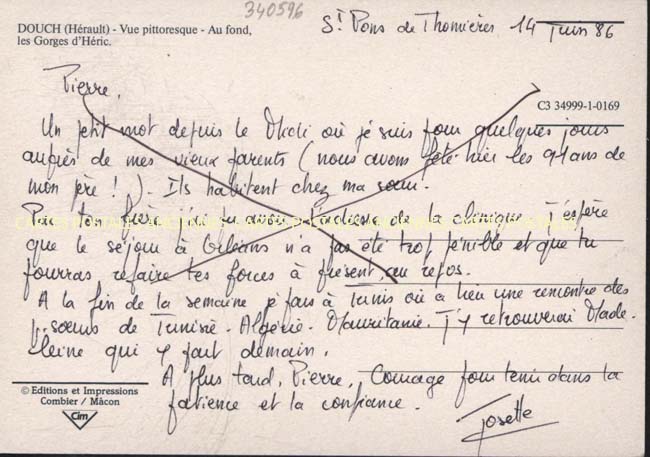 340596
DOUCH (Hérault) - Vue pittoresque - Au fond,
les Gorges d'Héric.
St Pons de Thomières 14 Juin 86
C3 34999-1-0169
Pierre,
Un petit mot depuis le Midi où je suis pour quelques jours
auprès de mes vieux parents (nous avons fêté hier les 91 ans de
mon père !). Ils habitent chez ma sœur.
Par ton frère j'ai pu avoir l'adresse de la clinique. J'espère
que le séjour à Orléans n'a pas été trop pénible et que tu
pourras refaire tes forces à présent, au repos.
A la fin de la semaine je pars à Tunis où a lieu une rencontre des
p. sœurs de Tunisie - Algérie - Mauritanie. J'y retrouverai Made-
leine qui y part demain.
A plus tard, Pierre, Courage pour tenir dans la
patience et la confiance.
Josette
© Editions et Impressions
Combier / Mâcon
Cim